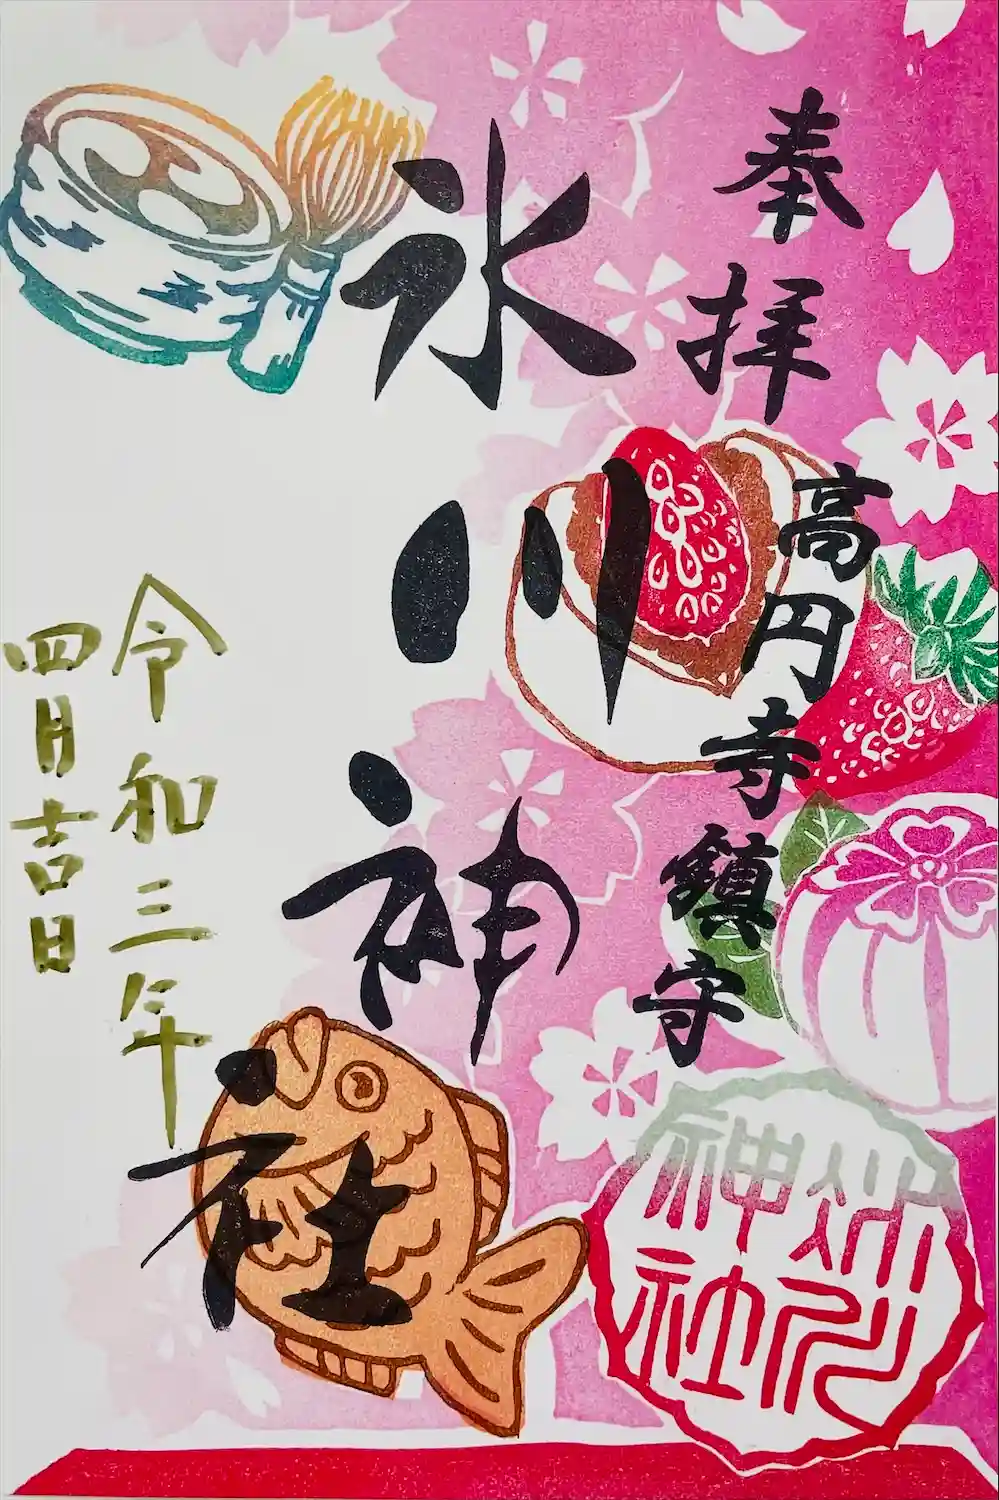 奉拝
高円寺鎮守
氷川神社
令和三年
四月吉日
氷川
神社